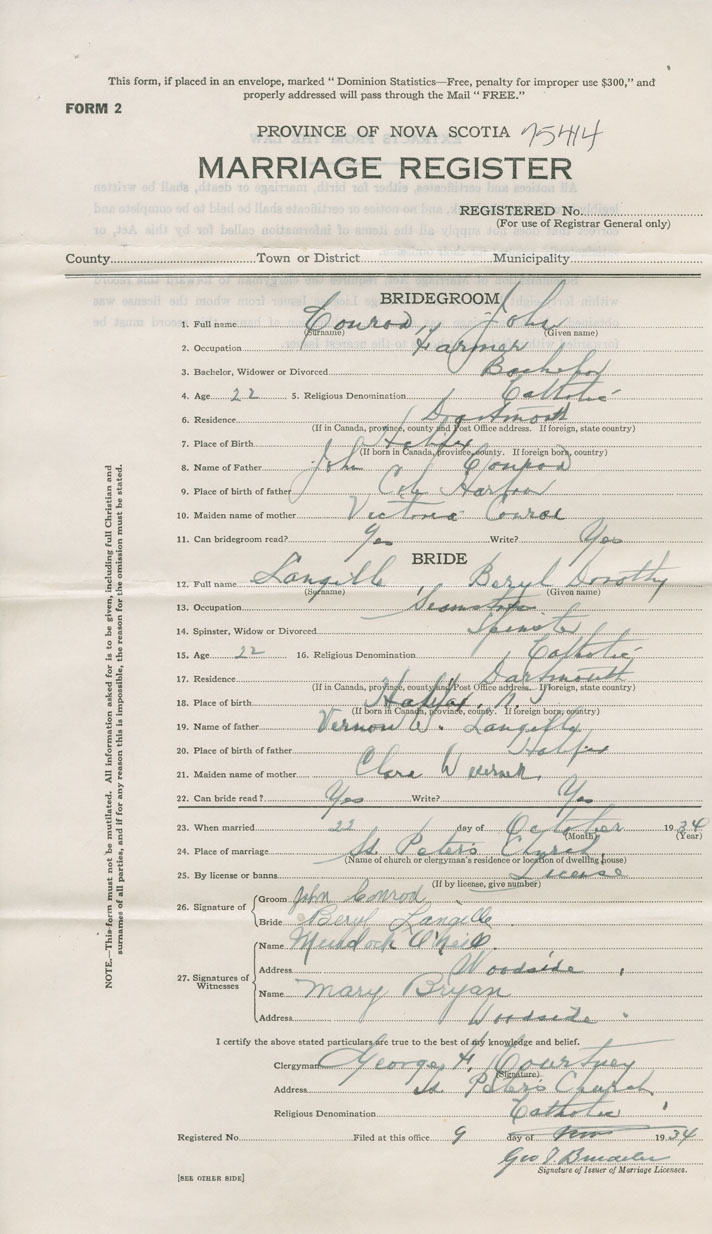 This form, if placed in an envelope, marked " Dominion Statistics—Free, penalty for improper use $300," and
properly addressed will pass through the Mail " FREE."
FORM 2
PROVINCE OF NOVA SCOTIA 75414
MARRIAGE REGISTER
REGISTERED No.
(For use of Registrar General only)
County Town or District Municipality
BRIDEGROOM
1. Full name Conrod, John
(Surname) (Given name)
2. Occupation Farmer
3. Bachelor, Widower or Divorced Bachelor
4. Age 22 5. Religious Denomination Catholic
6. Residence Dartmouth
(If in Canada, province, county and Post Office address. If foreign, state country)
7. Place of Birth Halifax
(If born in Canada, province, county. If foreign born, country)
8. Name of Father John Conrod
9. Place of birth of father Cole Harbor
10. Maiden name of mother Victoria Conrod
11. Can bridegroom read? Yes Write? Yes
BRIDE
12. Full name Langille, Beryl Dorothy
(Surname) (Given name)
13. Occupation Seamstress
14. Spinster, Widow or Divorced Spinster
15. Age 22 16. Religious Denomination Catholic
17. Residence Dartmouth
(If in Canada, province, county and Post Office address. If foreign, state country)
18. Place of birth Halifax, N.
(If born in Canada, province, county. If foreign born, country)
19. Name of father Vernon W. Langille
20. Place of birth of father Halifax
21. Maiden name of mother Clara
22. Can bride read? Yes Write? Yes
23. When married 22 day of October 1934
(Month) (Year)
24. Place of marriage St. Peter's Church
(Name of church or clergyman's residence or location of dwelling house)
25. By license or banns License
(If by license, give number)
26. Signature of Groom John Conrod
Bride Beryl Langille
27. Signatures of Witnesses
Name Murdock O'Neill
Address Woodside
Name Mary Bryan
Address Woodside
I certify the above stated particulars are true to the best of my knowledge and belief.
Clergyman George H. Courtney
(Signature)
Address St. Peter's Church
Religious Denomination Catholic
Registered No. Filed at this office 9 day of Nov 1934
Geo J.
Signature of Issuer of Marriage Licenses.
[SEE OTHER SIDE]
NOTE.—This form must not be mutilated. All information asked for is to be given, including full Christian and
surnames of all parties, and if for any reason this is impossible, the reason for the omission must be stated.